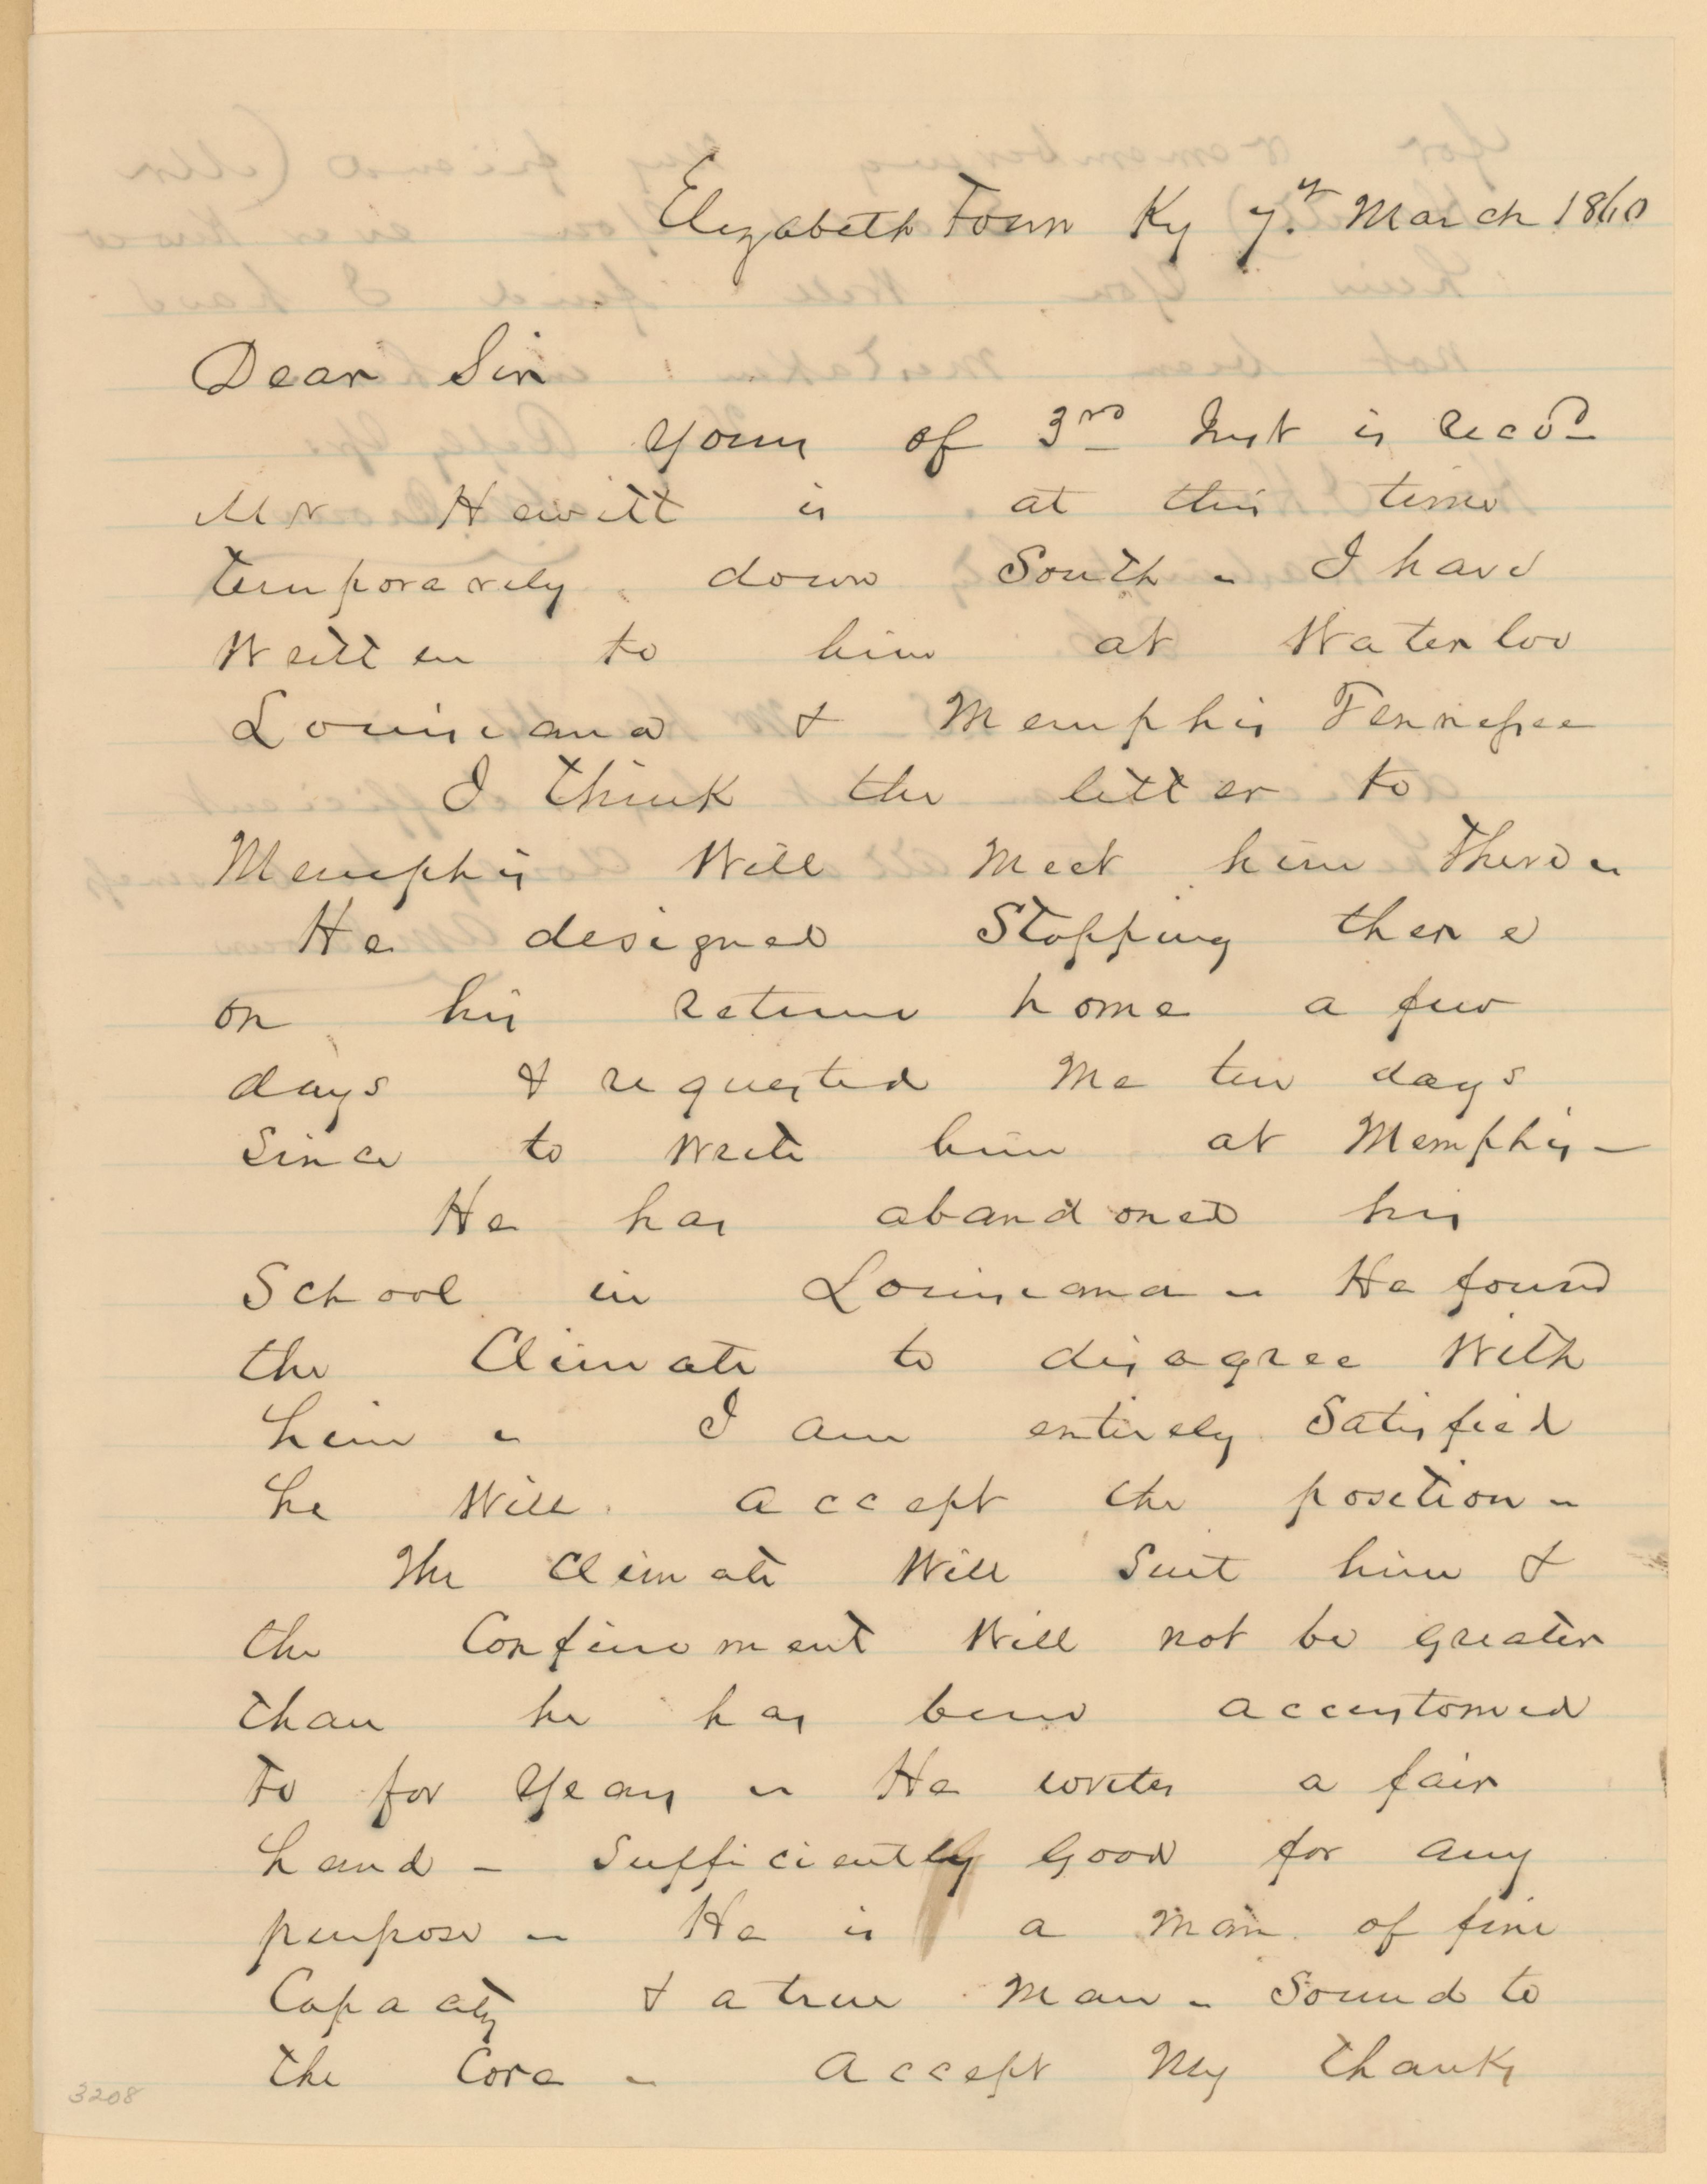 Elizabeth Town Ky 7th March 1860
Dear Sir
Yours of 3rd Inst is Recd
Mr Hewitt is at this time
temporarily down South - I have
Written to him at Waterloo
Louisiana & Memphis Tennessee
I think the letter to
Memphis Will Meet him There -
He designed Stopping there
on his return home a few
days & requested Me ten days
Since to Write him at Memphis -
He has abandoned his
School in Louisiana - He found
the Climate to disagree With
him - I am entirely Satisfied
he Will accept the position -
The Climate Will Suit him &
the Confinement Will not be greater
than he has been accustomed
to for Years - He writes a fair
hand - Sufficiently Good for any
purpose - He is a man of fine
Capacity & a true Man - Sound to
the Core - Accept My thanks
3208